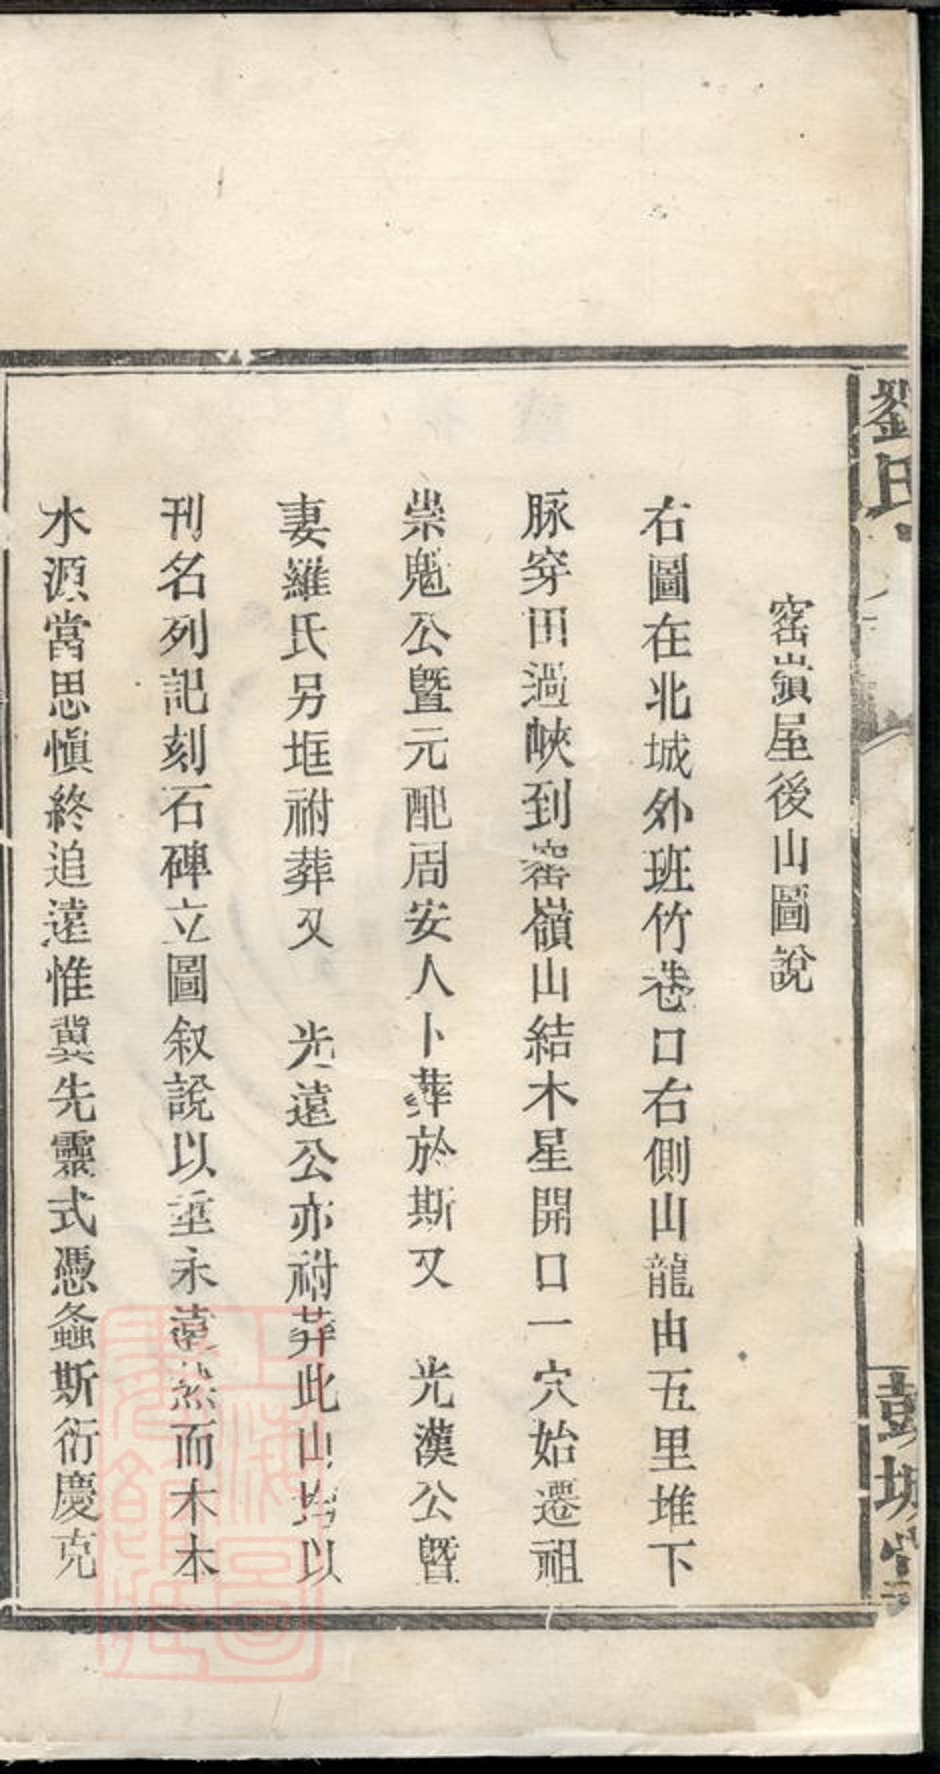 劉氏
彭城堂
窑嶺屋後山圖說
右圖在北城外班竹巷口右側山龍由五里堆下
脉穿田過峽到窑嶺山結木星開口一穴始遷祖
崇魁公曁元配周安人卜葬於斯又 光漢公曁
妻羅氏另堆祔葬又 光遠公亦祔葬此山均以
刊名列記刻石碑立圖叙說以垂永遠然而木本
水源當思愼終追遠惟冀先靈式憑螽斯衍慶克
上海圖書館藏